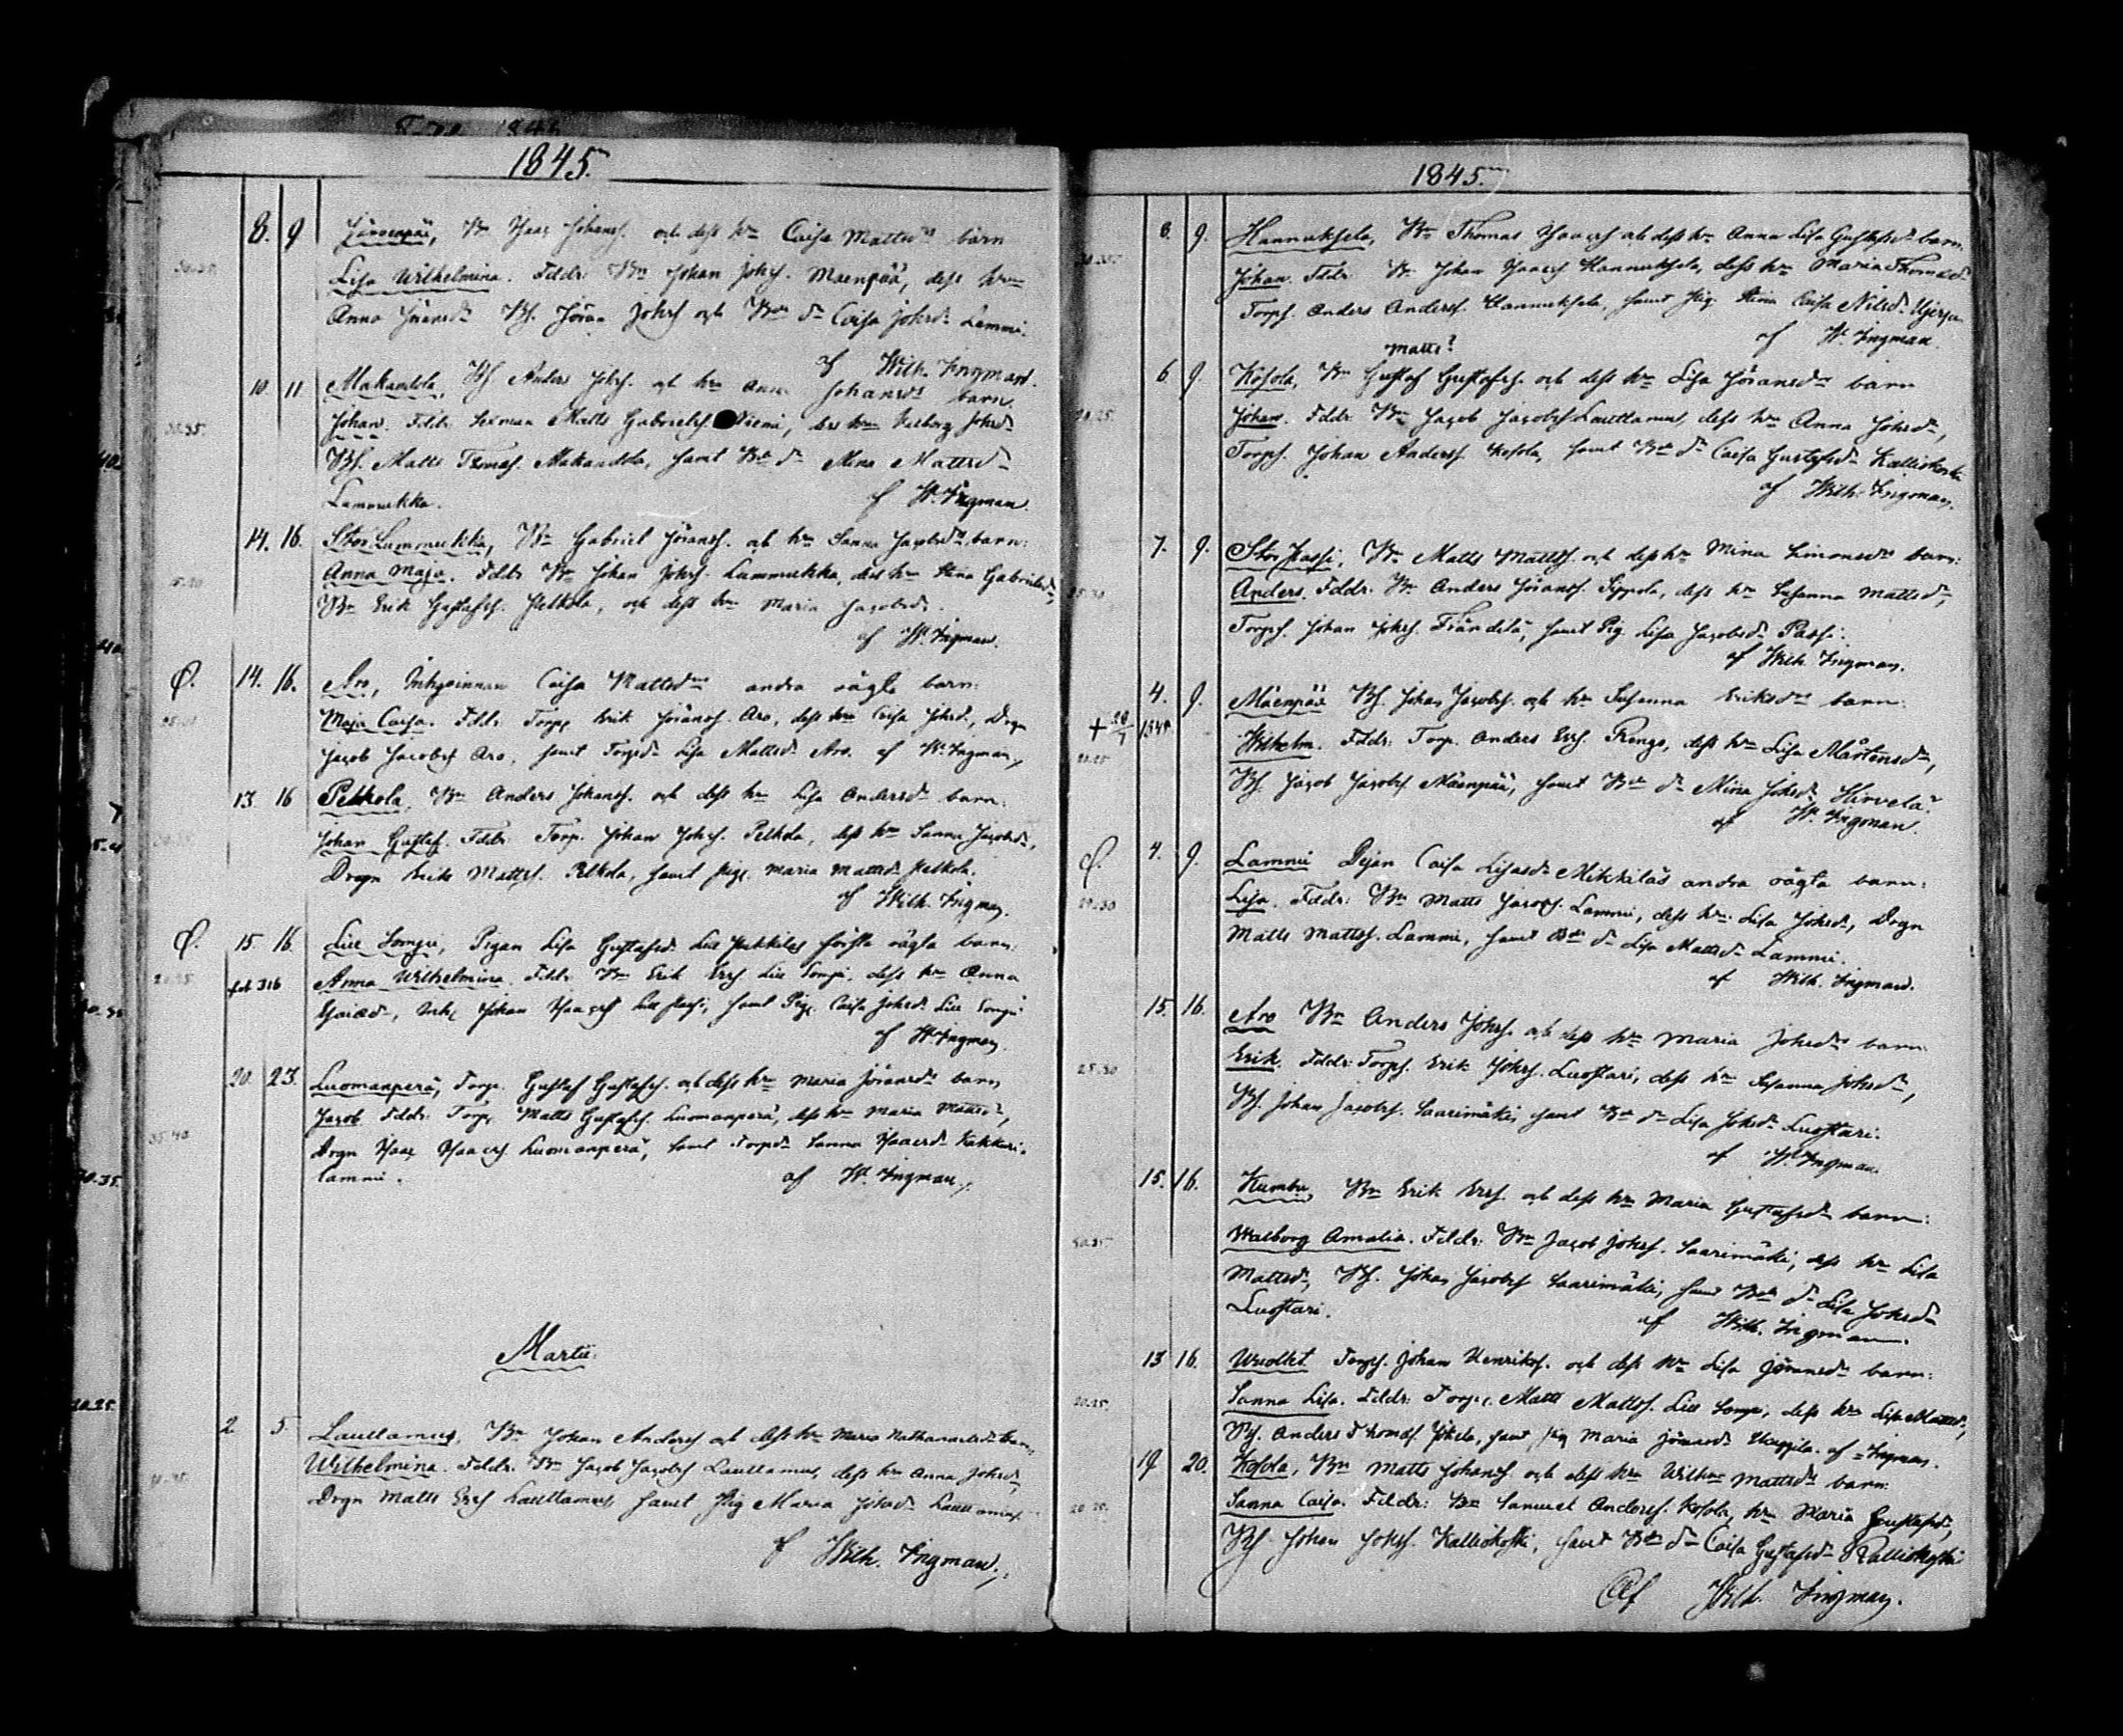 1845.
8. 9 Järvenpää, Bn Isaac Johanss. och dess hn Caisa Mattsdrs barn
30.35. Lisa Wilhelmina. Fddr. Bn Johan Johss. Mäenpää, dess hn
Anna Göransdr Bs. Göran Johss och Bde dr Caisa Johsdr Lammi.
af Wilh. Ingman.
10. 11 Makandola, Bs Anders Johss. och hn Anna Johansdrs barn.
Johan. Fddr. Sexman Matts Gabrielss. Niemi, dess hn Johsdr
Bs. Matts Thomss. Makandola, samt Bde dr Mina Mattsdr
Lammukka. af W. Ingman.
14. 16. Stor Lummukka, Bn Gabriel Göranss. och hn Sanna Jacobsdrs barn:
Anna Maja. Fddr Bn Johan Johss. Lummukka, dess hn Stina Gabrielsdr,
Bn Erik Gustafss. Pelkola, och dess hn Maria Jacobsdr.
af W. Ingman.
14. 16. Aro, Inhysinnan Caisa Mattsdrs andra oägta barn:
Maja Caisa. Fddr. Torp. Erik Göranss. Aro, dess hn Caisa Johsdr, Drgn
Jacob Jacobss Aro, samt Torpdr Lisa Mattsdr Aro. af W. Ingman.
13. 16 Pelkola, Bn Anders Johanss. och dess hn Lisa Andersdrs barn:
Johan Gustaf. Fddr. Torp. Johan Johss. Pelkola, dess hn Sanna Jacobsdr,
Drgn Erik Mattss. Pelkola, samt Pig. Maria Mattsdr Pelkola.
af Wilh. Ingman.
15. 16. Lill Sompi, Pigan Lisa Gustafsdr Lill första oägta barn:
fol. 316 Anna Wilhelmina. Fddr. Bn Erik Erss Lill Sompi, dess hn Anna
Johan Isaacss Lill Passi, samt Pig. Caisa Johsdr Lill Sompi
af W. Ingman.
20. 23. Luomanperä, Torp. Gustaf Gustafss. och dess hn Maria Göransdrs barn
Jacob Fddr. Torp. Matts Gustafss. Luomanperä, dess hn Maria
35.40 Drgn Isaac Isaacss Luomanperä, samt Torpdr Sanna Isaacsdr Kakkuri-
lammi. af W. Ingman.
Martii.
2 5. Lauttamus, Bn Johan Anderss och dess hn Maria Nathanaelsdrs barn,
Wilhelmina. Fddr. Bn Jacob Jacobss Lauttamus, dess hn Anna Johsdr,
Drgn Matts Erss Lauttamus, samt Pig Maria Johsdr Lauttamus.
af Wilh. Ingman.
1845.
8. 9. Hannuksela, Bn Thomas Isaacss och dess hn Anna Lisa Gustafsdrs barn.
Johan. Fddr. Bn Johan Isaacss Hannuksela, dess hn Maria Thomasdr
Torps. Anders Anderss. Hannuksela, samt Pig. Stina Caisa Nilsdr
af W. Ingman.
Matts?
6 9. Kosola, Bn Gustaf Gustafss. och dess hn Lisa Göransdrs barn
20.25. Johan. Fddr. Bn Jacob Jacobss Lauttamus, dess hn Anna Johsdr,
Torps. Johan Anderss. Kosola, samt Bde dr Caisa Gustafsdr Kalliokoski
af Wilh. Ingman.
7. 9. Stor Passi, Bn Matts Mattss. och dess hn Mina Simonsdrs barn:
Anders. Fddr. Bn Anders Göranss. Seppola, dess hn Susanna Mattsdr,
Torps. Johan Johss. Frändilä, samt Pig. Lisa Jacobsdr Passi.
af Wilh. Ingman.
4. 9. Mäenpää Bs. Johan Jacobss. och hn Susanna Eriksdrs barn:
+ 1845
Wilhelm. Fddr. Torp. Anders Erss. Rengo, dess hn Lisa Mårtensdr,
Bs. Jacob Jacobss Mäenpää, samt Bde dr Mina Johsdr Hirvelä
af W. Ingman.
4. 9 Lammi Pijan Caisa Lisasdr Mikkiläs andra oägta barn:
Lisa. Fddr. Bn Matts Jacobss. Lammi, dess hn Lisa Johsdr, Drgn
Matts Mattss. Lammi, samt Bde dr Lisa Mattsdr Lammi.
af Wilh. Ingman.
15. 16. Aro Bn Anders Johss. och dess hn Maria Johsdrs barn:
25.30 Erik. Fddr. Torps. Erik Johss. Luostari, dess hn Susanna Johsdr,
Bs. Johan Jacobss. Saarimäki, samt Bde dr Lisa Johsdr Luostari.
af W. Ingman.
15. 16. Kumbu Bn Erik Erss. och dess hn Maria Gustafsdrs barn:
Walborg Amalia. Fddr. Bn Jacob Johss. Saarimäki, dess hn Lisa
Mattsdr, Bs. Johan Jacobss Saarimäki, samt Bde dr Lisa Johsdr
Luostari. af Wilh. Ingman.
13 16. Wuollet Torps. Johan Henrikss. och dess hn Lisa Göransdrs barn:
20.25. Sanna Lisa. Fddr. Torp. Matts Mattss. Lill Sompi, dess hn Lisa Mattsdr,
Bs. Anders Thomass Jokela, samt Pig Maria Göransdr af Ingman.
19 20. Kosola, Bn Matts Johanss. och dess hn Wilhna Mattsdrs barn:
Sanna Caisa. Fddr. Bn Samuel Anderss. Kosola, hn Maria Gustafsdr,
Bs. Johan Johss. Kalliokoski, samt Bde dr Caisa Gustafsdr Kalliokoski
Af Wilh. Ingman.